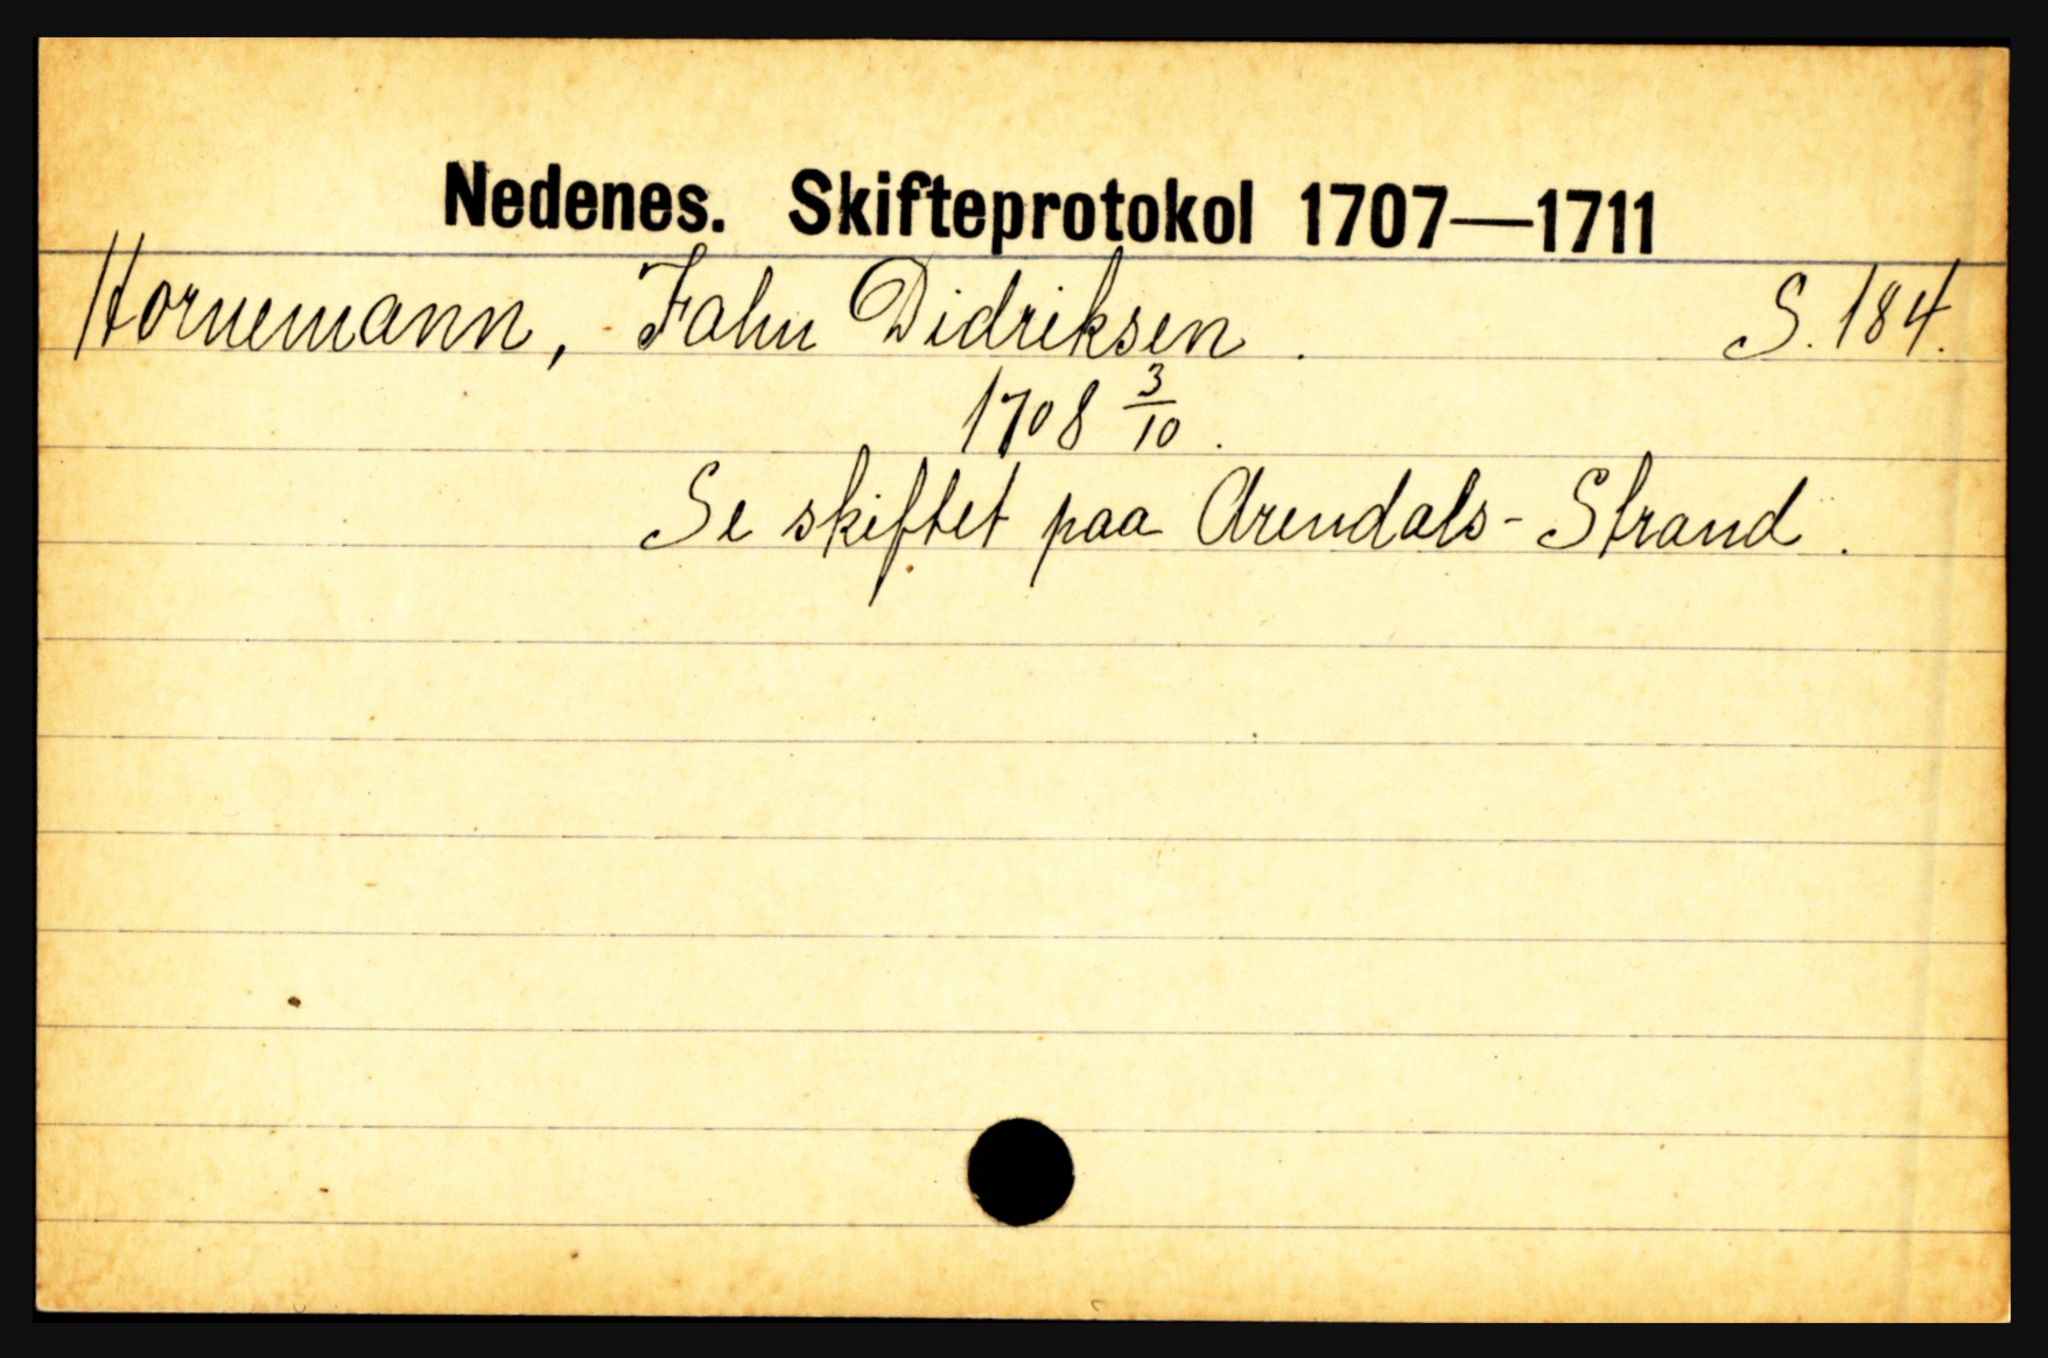 Nedenes. Skifteprotokol 1707—1711
Hornemann, Fahn Didriksen. S. 184.
1708 3/10.
Se skiftet paa Arendals-Strand.